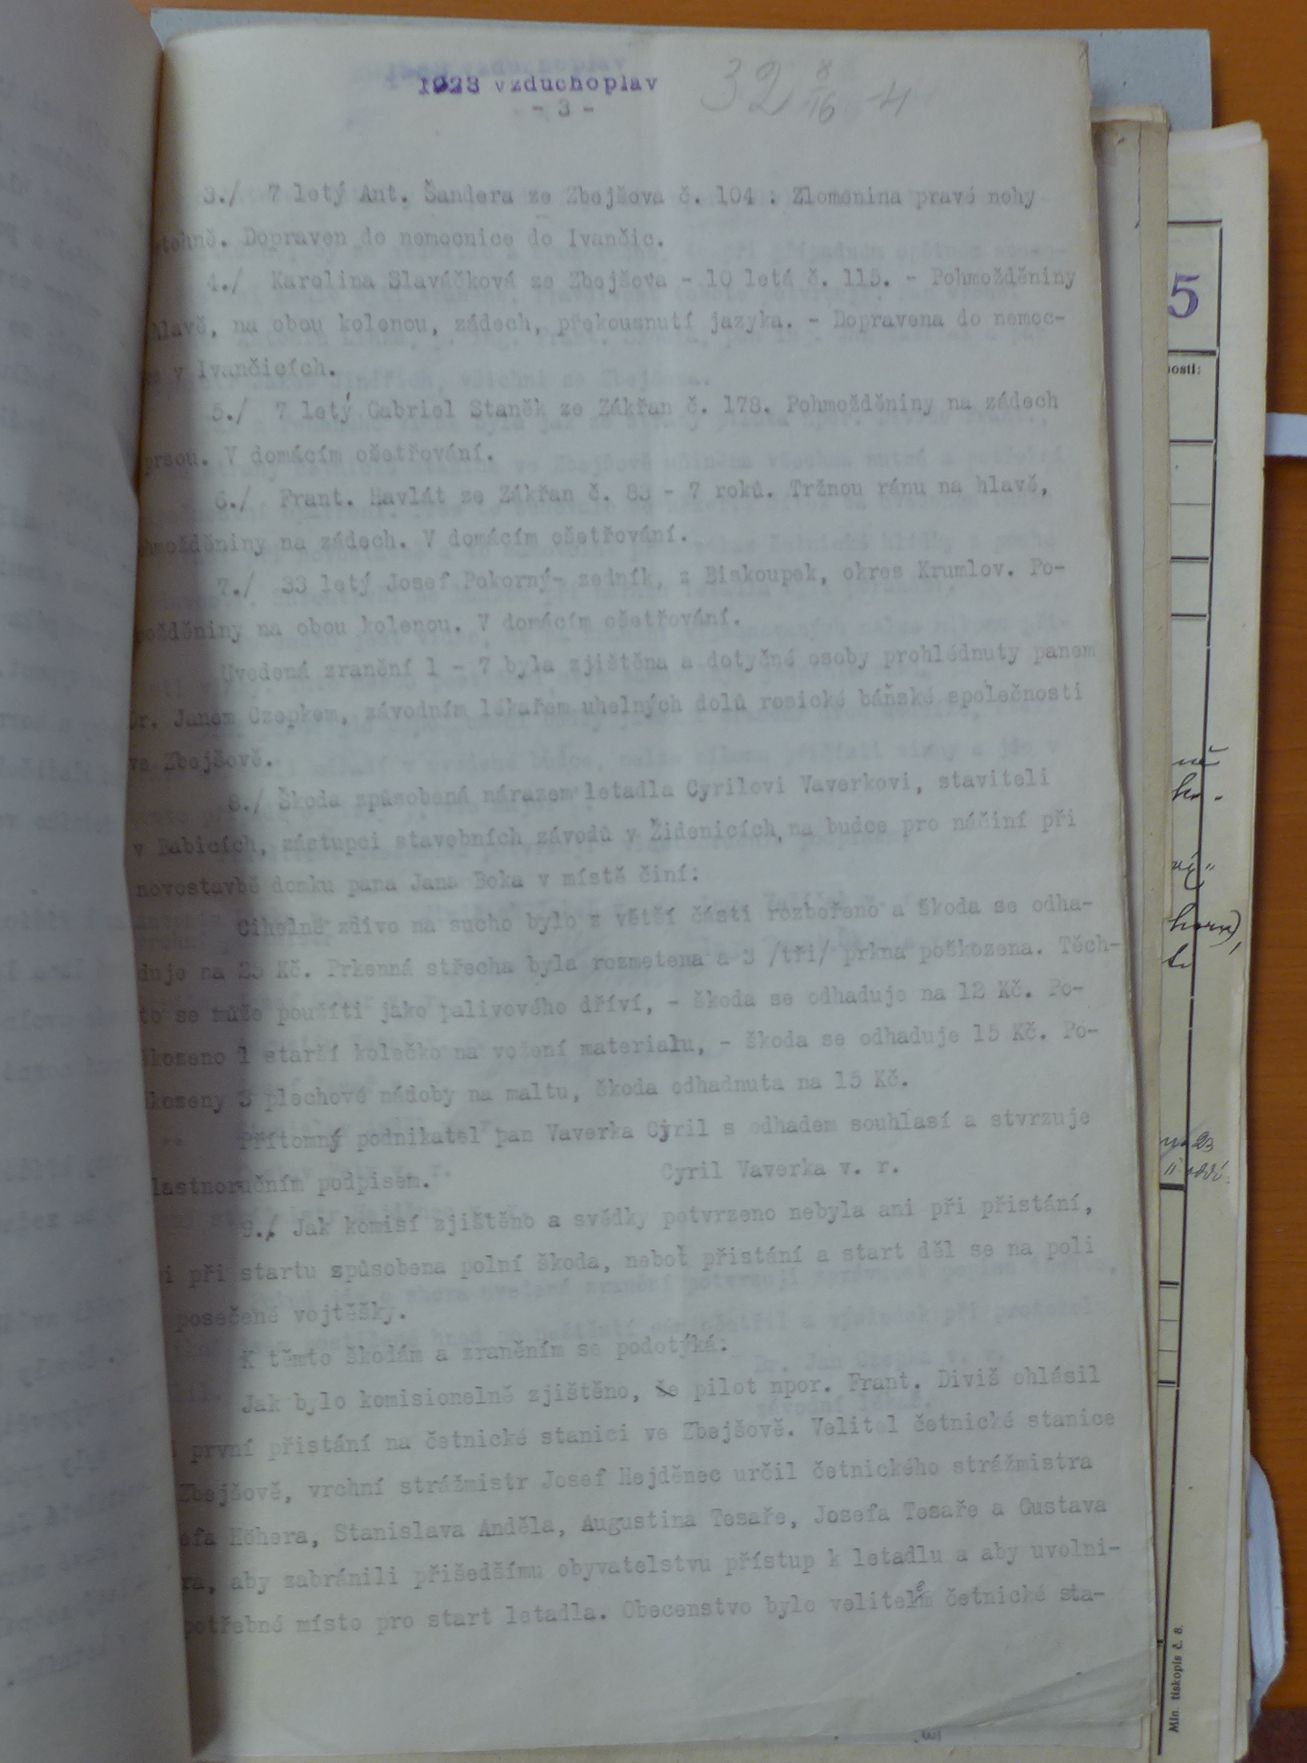 1923 vzduchoplav
32 8/16 -4
- 3 -
3./ 7 letý Ant. Šandera ze Zbejšova č. 104 : Zlomenina pravé nohy
stehně. Dopraven do nemocnice do Ivančic.
4./ Karolina Slaváčková ze Zbejšova - 10 letá č. 115. - Pohmožděniny
hlavě, na obou kolenou, zádech, překousnutí jazyka. - Dopravena do nemoc-
v Ivančicích.
5./ 7 letý Gabriel Staněk ze Zákřan č. 178. Pohmožděniny na zádech
prsou. V domácím ošetřování.
6./ Frant. Havlát ze Zákřan č. 83 - 7 roků. Tržnou ránu na hlavě,
ohmožděniny na zádech. V domácím ošetřování.
7./ 33 letý Josef Pokorný- zedník, z Biskoupek, okres Krumlov. Po-
možděniny na obou kolenou. V domácím ošetřování.
Uvedená zranění 1 - 7 byla zjištěna a dotyčné osoby prohlédnuty panem
Dr. Janem Czepkem, závodním lékařem uhelných dolů rosické báňské společnosti
ve Zbejšově.
8./ Škoda způsobená nárazem letadla Cyrilovi Vaverkovi, staviteli
v Babicích, zástupci stavebních závodů v Židenicích, na budce pro náčiní při
novostavbě domku pana Jana Boka v místě činí:
Cihelné zdivo na sucho bylo z větší části rozbořeno a škoda se odha-
duje na 25 Kč. Prkenná střecha byla rozmetena a 3 /tři/ prkna poškozena. Těch-
to se může použíti jako palivového dříví, - škoda se odhaduje na 12 Kč. Po-
škozeno 1 starší kolečko na vožení materialu, - škoda se odhaduje 15 Kč. Po-
kozeny 3 plechové nádoby na maltu, škoda odhadnuta na 15 Kč.
Přítomný podnikatel pan Vaverka Cyril s odhadem souhlasí a stvrzuje
lastnoručním podpisem. Cyril Vaverka v. r.
9./ Jak komisí zjištěno a svědky potvrzeno nebyla ani při přistání,
i při startu způsobena polní škoda, neboť přistání a start děl se na poli
posečené vojtěšky.
K těmto škodám a zraněním se podotýká:
Jak bylo komisionelně zjištěno, že pilot npor. Frant. Diviš ohlásil
první přistání na četnické stanici ve Zbejšově. Velitel četnické stanice
Zbejšově, vrchní strážmistr Josef Hejděnec určil četnického strážmistra
efa Höhera, Stanislava Anděla, Augustina Tesaře, Josefa Tesaře a Gustava
ra, aby zabránili přišedšímu obyvatelstvu přístup k letadlu a aby uvolni-
potřebné místo pro start letadla. Obecenstvo bylo velitelem četnické sta-
5
nosti:
Min. tiskopis č. 8.